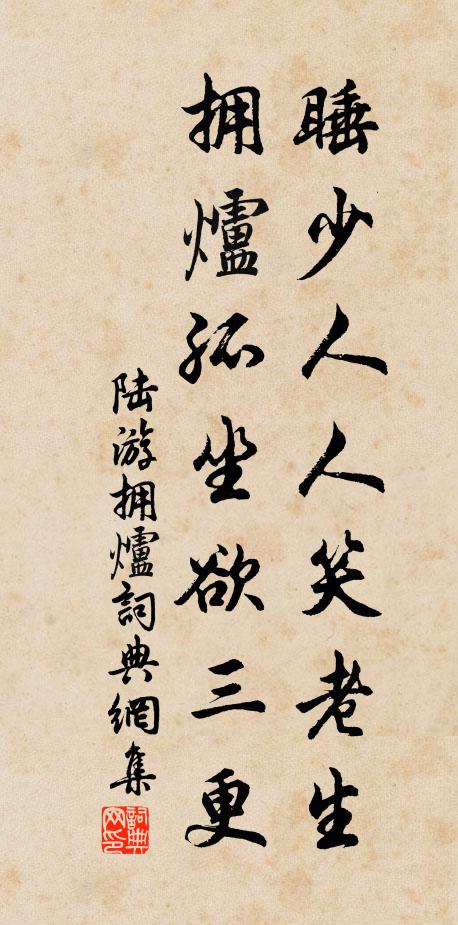 睡少人人笑老生
拥爐孤坐欲三更
陆游拥爐詞典網集
詞典网印